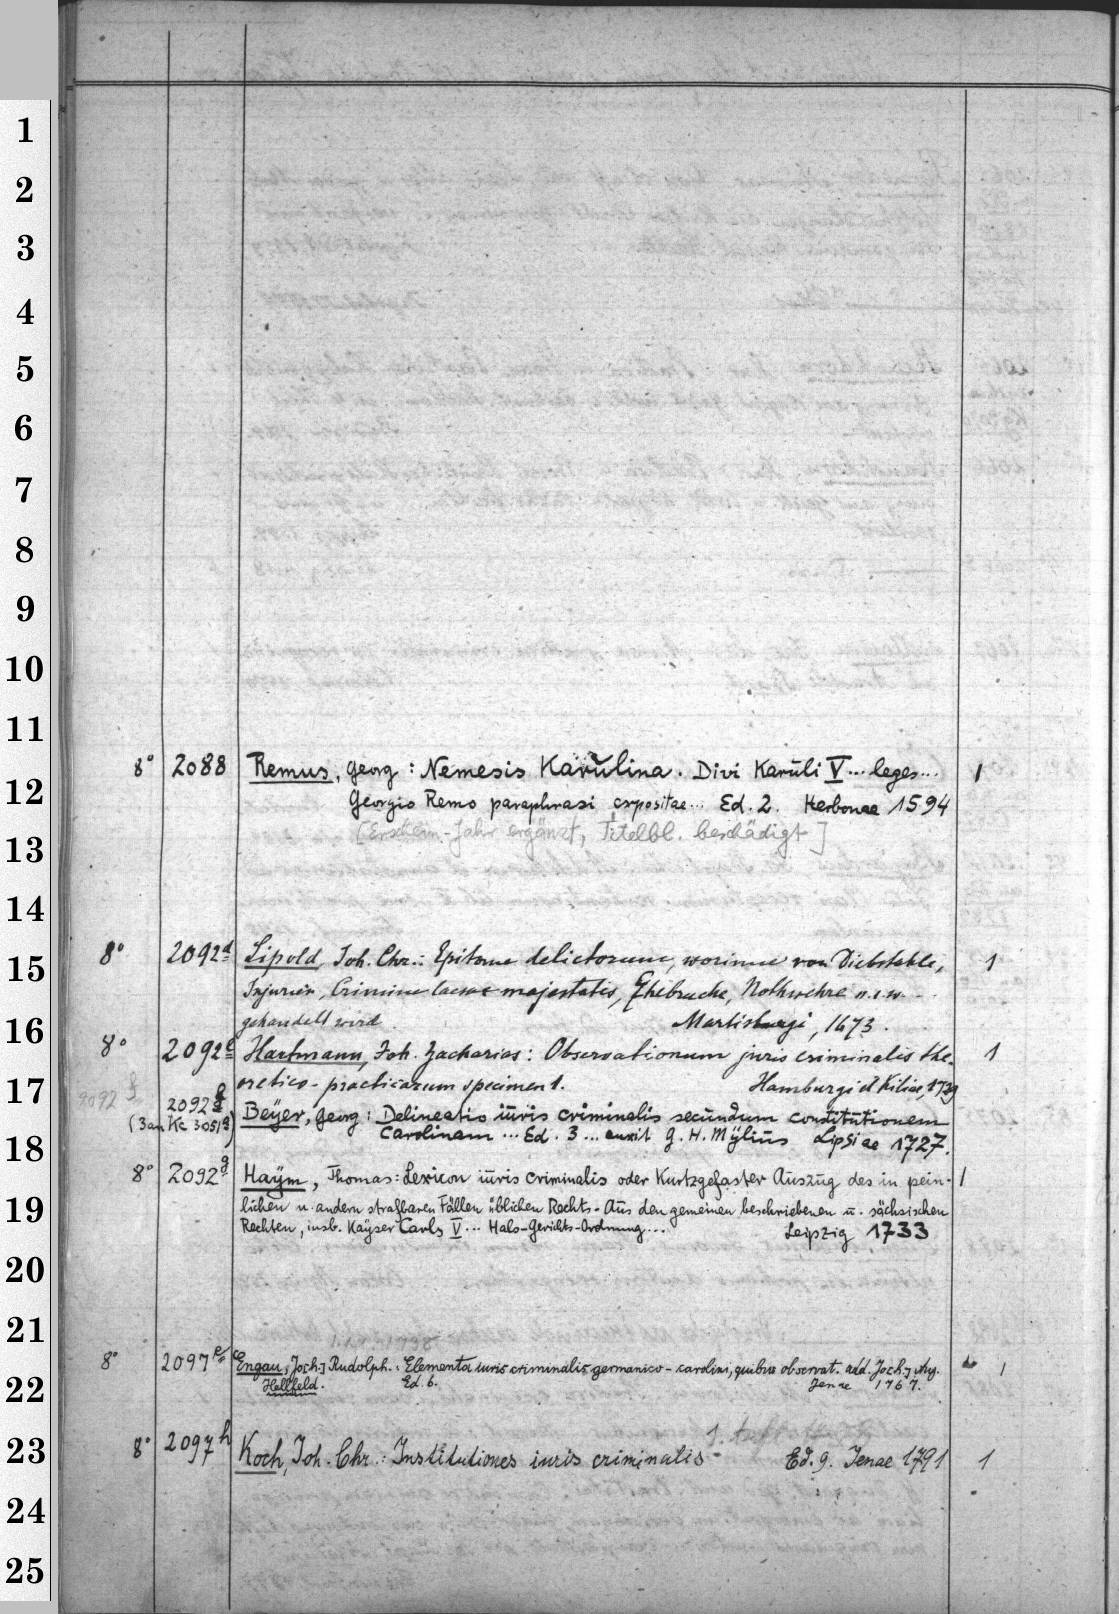 1
2
3
4
5
6
7
8
9
10
11
8° 2088 Remus, Georg: Nemesis Karŭlina. Divi Karŭli V... leges... 1
12
Georgio Remo paraphrasi expositae... Ed. 2. Herbonae 1594
[Erschein-Jahr ergänzt, Titelbl. beschädigt]
13
14
8° 2092d Lipold, Joh. Chr.: Epitome delictorum, worinne von Diebstahle, 1
15
Injurien, Crimine laesae majestatis, Ehebruche, Nothwehre u.s.w. - -
gehandelt wird. Martisburgi, 1673.
16
8° 2092e Hartmann, Joh. Zacharias: Observationum juris criminalis the- 1
oretico-practicarum specimen 1. Hamburgi et Kiliae, 1739
17
2092f
2092f Beÿer, Georg: Delineatio iŭris criminalis secŭndŭm constitŭtionem
(3an Kc 3051a) Carolinam ... Ed. 3 ... auxit G. H. Mÿliŭs Lipsiae 1727.
18
8° 2092g Haÿm, Thomas: Lexicon iŭris criminalis oder Kurtzgefaster Aŭszŭg des in pein- 1
lichen u. andern strafbaren Fällen üblichen Rechts - Aŭs den gemeinen beschriebenen ŭ. sächsischen
19
Rechten, insb. Kaÿser Carls V ... Hals-Gerichts-Ordnung ... Leipzig 1733
20
21
8° 2097e Engau, Joh.] Rudolph.: Elementa iuris criminalis germanico-carolini, quibus observat. add. Joch.] Aug. 1
22
Hellfeld. Ed. 6. Jenae 1767.
8° 2097h Koch, Joh. Chr.: Institutiones iuris criminalis - Ed. 9. Jenae 1791 1
23
24
25